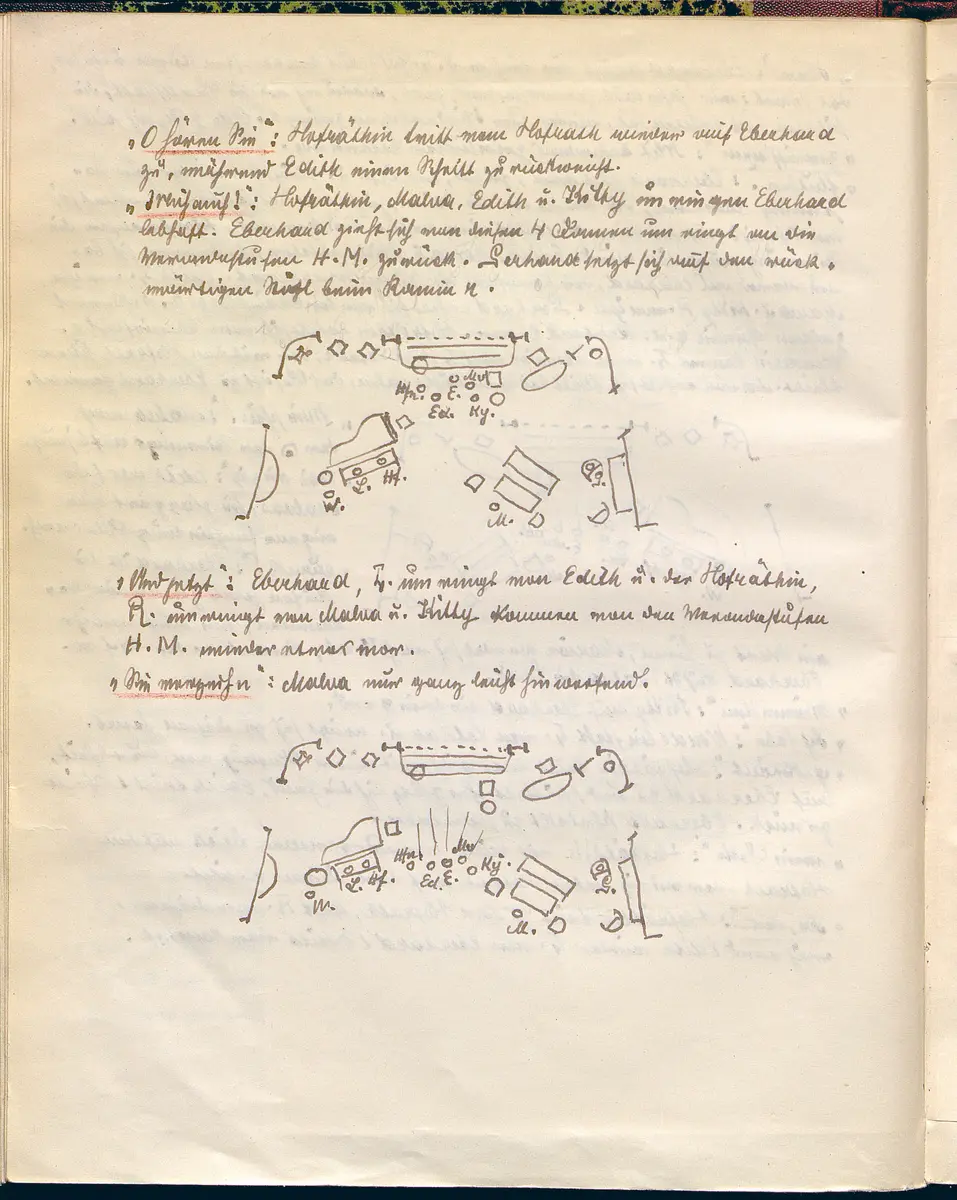 „O hören Sie“: Hofräthin tritt vom Hofrath wieder auf Eberhard
zu, während Edith einen Schritt zurückweicht.
„ : Hofräthin, Malva, Edith u. Kitty umringen Eberhard
lebhaft. Eberhard zieht sich von diesen 4 Damen umringt an die
Verandastufen H. M. zurück. Gerhard setzt sich auf den rück-
wärtigen Stuhl beim Kamin r.
Hfn. E. Mv.
Ed. Ky.
L. Hf.
W.
G.
M.
„Und jetzt“: Eberhard, L. umringt von Edith u. der Hofräthin,
R. umringt von Malva u. Kitty kommen von den Verandastufen
H. M. wieder etwas vor.
„Sie verzeihn“: Malva nur ganz leicht hinwerfend.
Hfn. Mv.
L. Hf. Ed. E. Ky.
W.
G.
M.